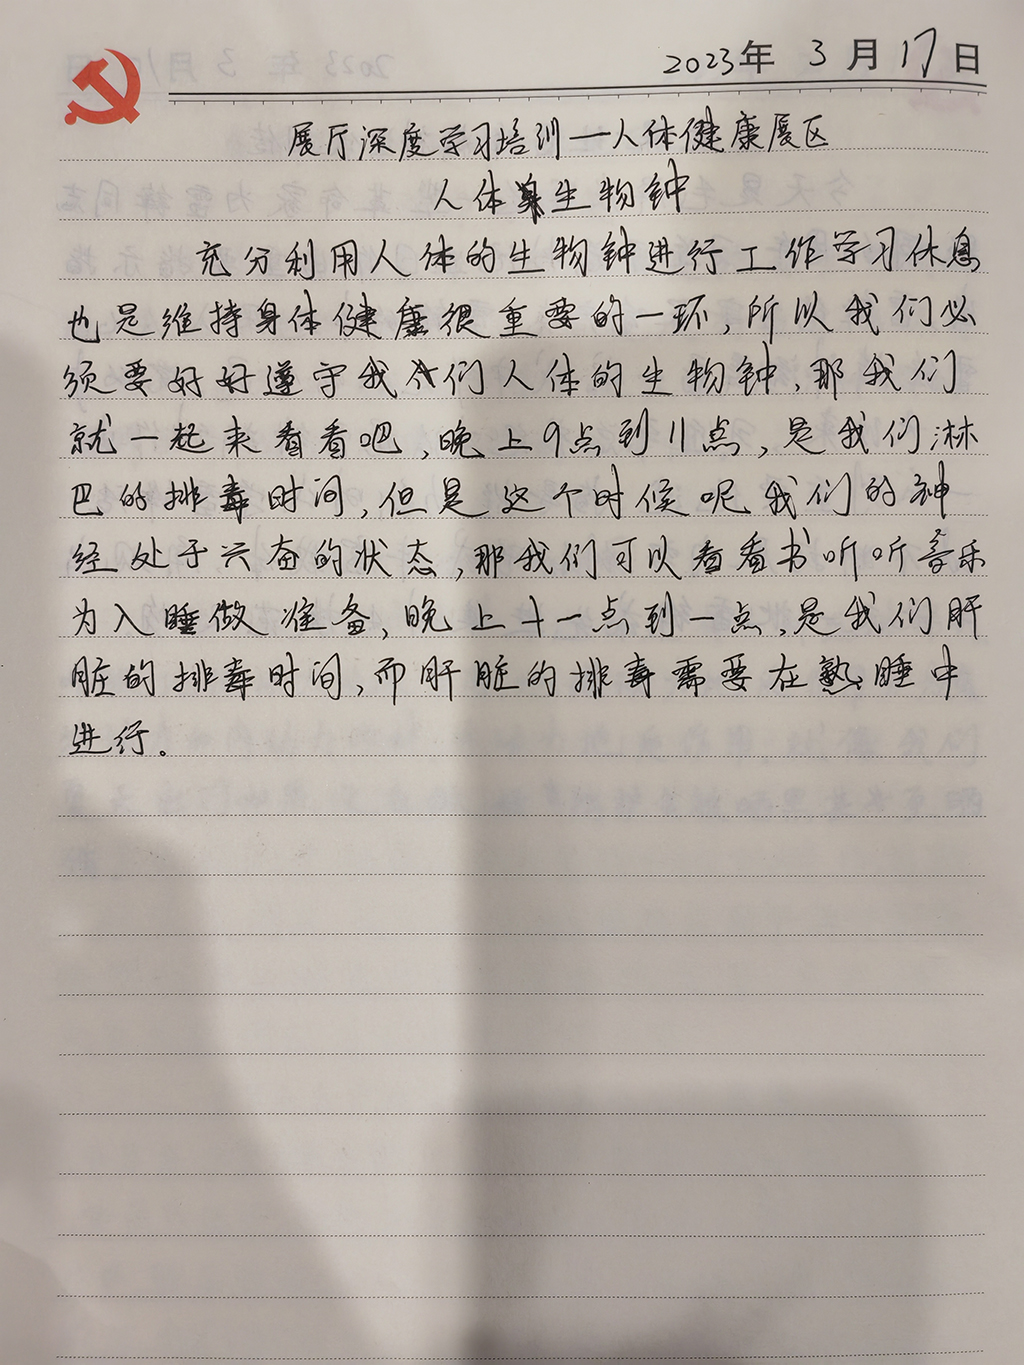 2023年 3月17日
展厅深度学习培训—人体健康展区
人体生物钟
充分利用人体的生物钟进行工作学习休息
也是维持身体健康很重要的一环,所以我们必
须要好好遵守我们人体的生物钟,那我们
就一起来看看吧,晚上9点到11点,是我们淋
巴的排毒时间,但是这个时候呢我们的神
经处于兴奋的状态,那我们可以看看书听听音乐
为入睡做准备,晚上十一点到一点,是我们肝
脏的排毒时间,而肝脏的排毒需要在熟睡中
进行。